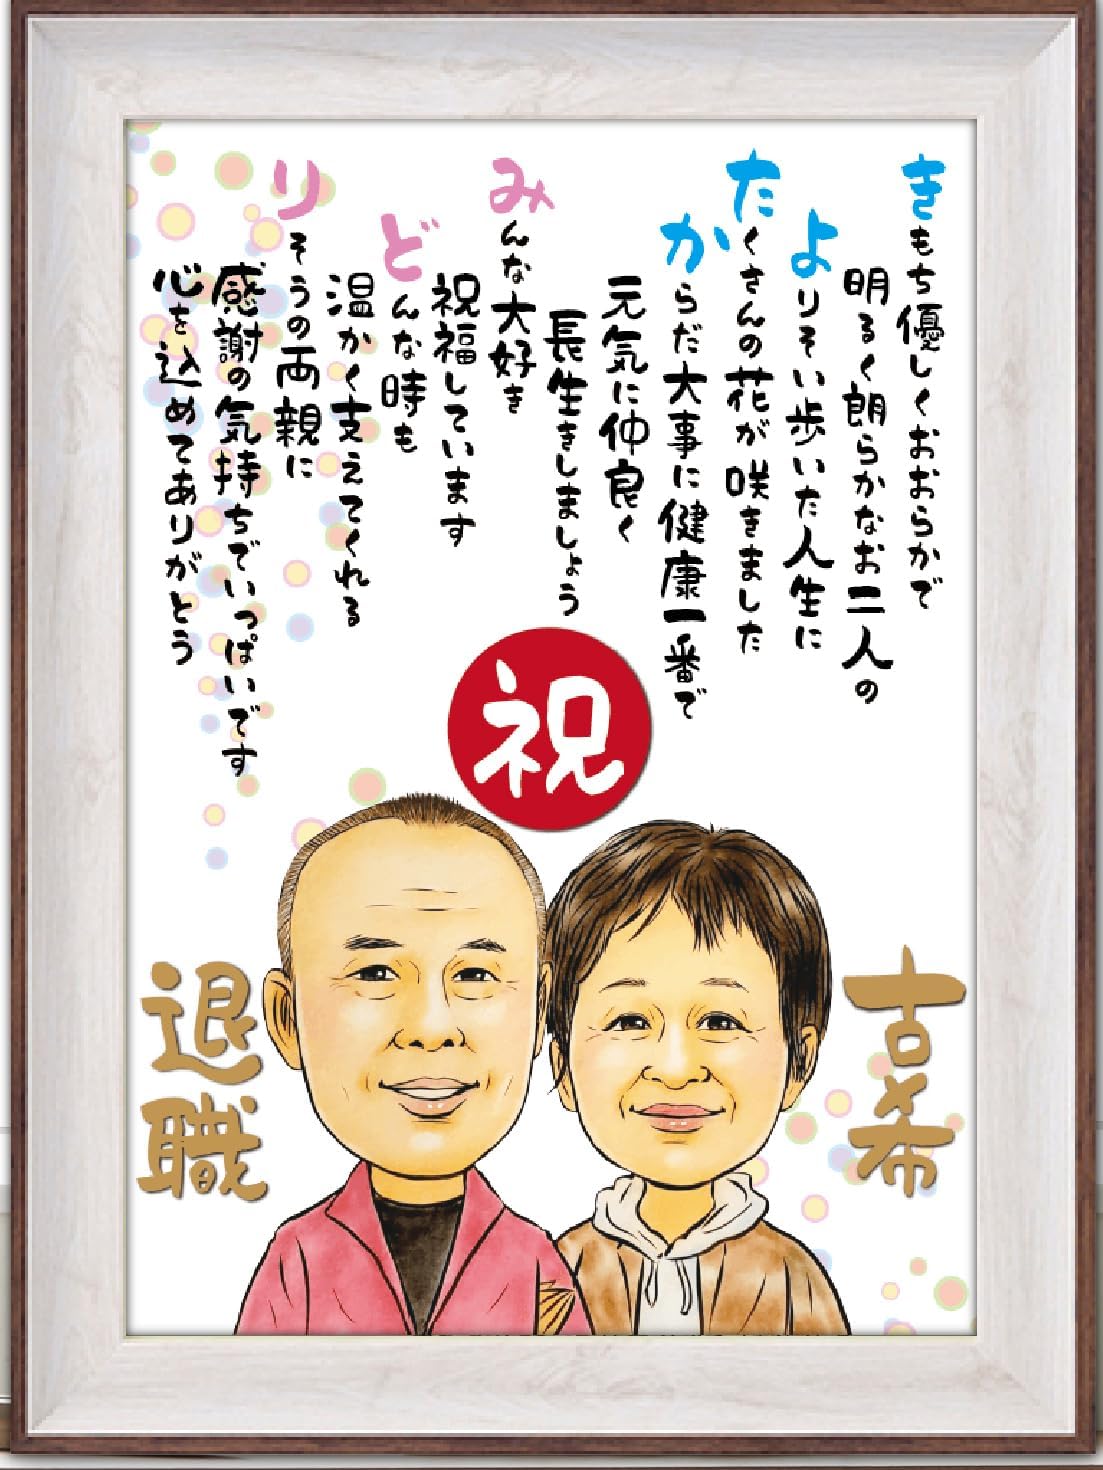 きもち優しくおおらかで
明るく朗らかなお二人の
よりそい歩いた人生に
たくさんの花が咲きました
からだ大事に健康一番で
元気に仲良く
長生きしましょう
みんな大好き
祝福しています
どんな時も
温かく支えてくれる
りそうの両親に
感謝の気持ちでいっぱいです
心を込めてありがとう
祝
古希
退職